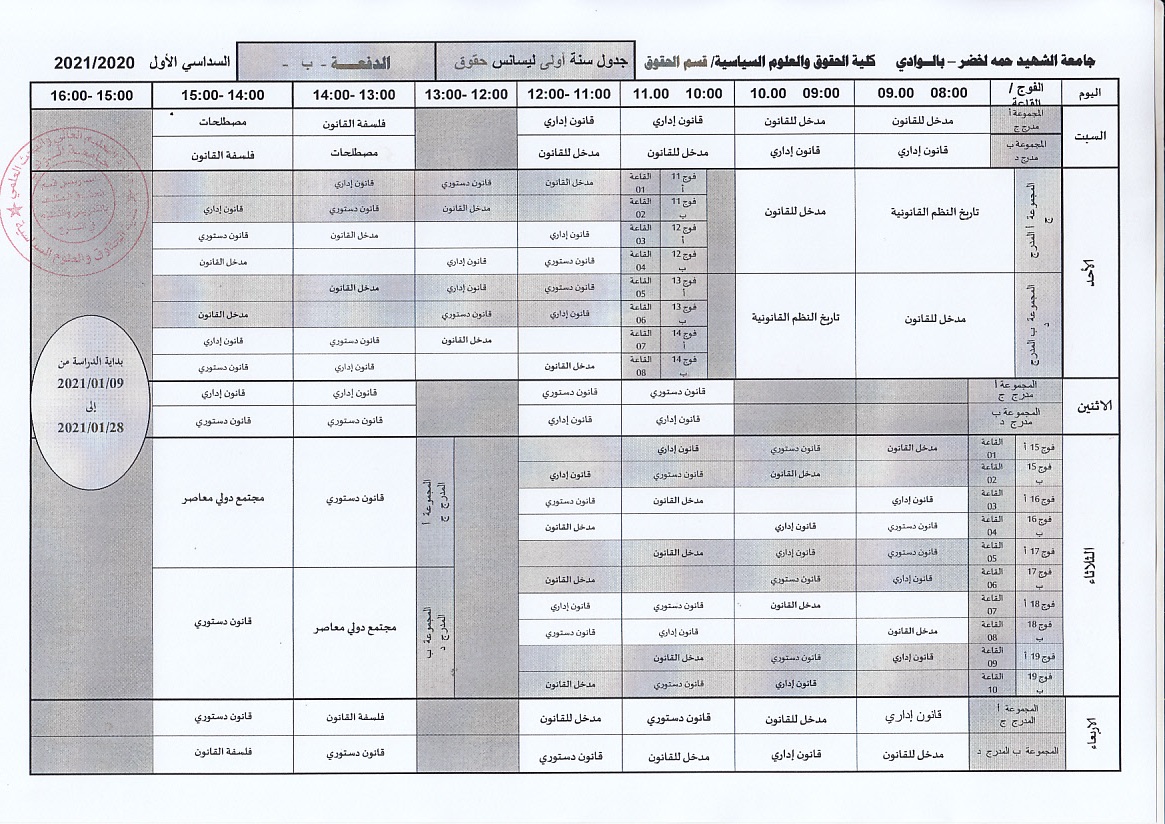 جامعة الشهيد حمه لخضر – بالــوادي كلية الحقوق والعلوم السياسية/ قسم الحقوق جدول سنة أولى ليسانس حقوق الدفعــــة - ب - السداسي الأول 2021/2020
اليوم الفوج / القاعة 08:00 09.00 09:00 10.00 10:00 11.00 11:00 -12:00 12:00 -13:00 13:00 -14:00 14:00 -15:00 15:00 -16:00
السبت
المجموعة أ مدرج ج مدخل للقانون مدخل للقانون قانون إداري قانون إداري فلسفة القانون مصطلحات
المجموعة ب مدرج د قانون إداري قانون إداري مدخل للقانون مدخل للقانون مصطلحات فلسفة القانون
الأحد
المجموعة أ المدرج ج تاريخ النظم القانونية مدخل للقانون
فوج 11 أ القاعة 01 مدخل القانون قانون دستوري قانون إداري
فوج 11 ب القاعة 02 مدخل القانون قانون دستوري قانون إداري
فوج 12 أ القاعة 03 قانون إداري مدخل القانون قانون دستوري
فوج 12 ب القاعة 04 قانون دستوري قانون إداري مدخل القانون
المجموعة ب المدرج د مدخل للقانون تاريخ النظم القانونية
فوج 13 أ القاعة 05 قانون دستوري قانون إداري مدخل القانون
فوج 13 ب القاعة 06 قانون إداري قانون دستوري مدخل القانون
فوج 14 أ القاعة 07 مدخل القانون قانون دستوري قانون إداري
فوج 14 ب القاعة 08 مدخل القانون قانون إداري قانون دستوري
الاثنين
المجموعة أ مدرج ج قانون دستوري قانون دستوري قانون إداري قانون إداري
المجموعة ب مدرج د قانون إداري قانون إداري قانون دستوري قانون دستوري
الثلاثاء
فوج 15 أ القاعة 01 مدخل القانون قانون دستوري قانون إداري
فوج 15 ب القاعة 02 مدخل القانون قانون دستوري قانون إداري
فوج 16 أ القاعة 03 قانون إداري مدخل القانون قانون دستوري
فوج 16 ب القاعة 04 قانون دستوري قانون إداري مدخل القانون
فوج 17 أ القاعة 05 قانون دستوري قانون إداري مدخل القانون
فوج 17 ب القاعة 06 قانون إداري قانون دستوري مدخل القانون
فوج 18 أ القاعة 07 مدخل القانون قانون دستوري قانون إداري
فوج 18 ب القاعة 08 مدخل القانون قانون إداري قانون دستوري
فوج 19 أ القاعة 09 قانون إداري قانون دستوري مدخل القانون
فوج 19 ب القاعة 10 قانون إداري قانون دستوري مدخل القانون
المجموعة أ المدرج ج قانون دستوري مجتمع دولي معاصر
المجموعة ب المدرج د مجتمع دولي معاصر قانون دستوري
الاربعاء
المجموعة أ المدرج ج قانون إداري مدخل للقانون قانون دستوري مدخل للقانون فلسفة القانون قانون دستوري
المجموعة ب المدرج د مدخل للقانون قانون إداري مدخل للقانون قانون دستوري قانون دستوري فلسفة القانون
بداية الدراسة من
2021/01/09
إلى
2021/01/28